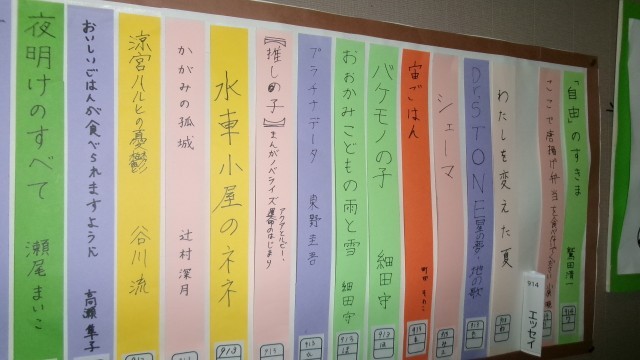 「自由」のすきま 鷲田清一
914
ここで唐揚げ弁当を
914 エッセイ
わたしを変えた夏
913
Dr.STONE 星の夢、地の歌
913
シェーマ
913
宙ごはん 町田そのこ
913
バケモノの子 細田守
913 ほ
おおかみこどもの雨と雪 細田守
913 ほ
プラチナデータ 東野圭吾
913
【推しの子】まんがノベライズ アクアとルビー・運命のはじまり
913
水車小屋のネネ
913
かがみの孤城 辻村深月
913
涼宮ハルヒの憂鬱 谷川流
913
おいしいごはんが食べられますように 高瀬隼子
夜明けのすべて 瀬尾まいこ